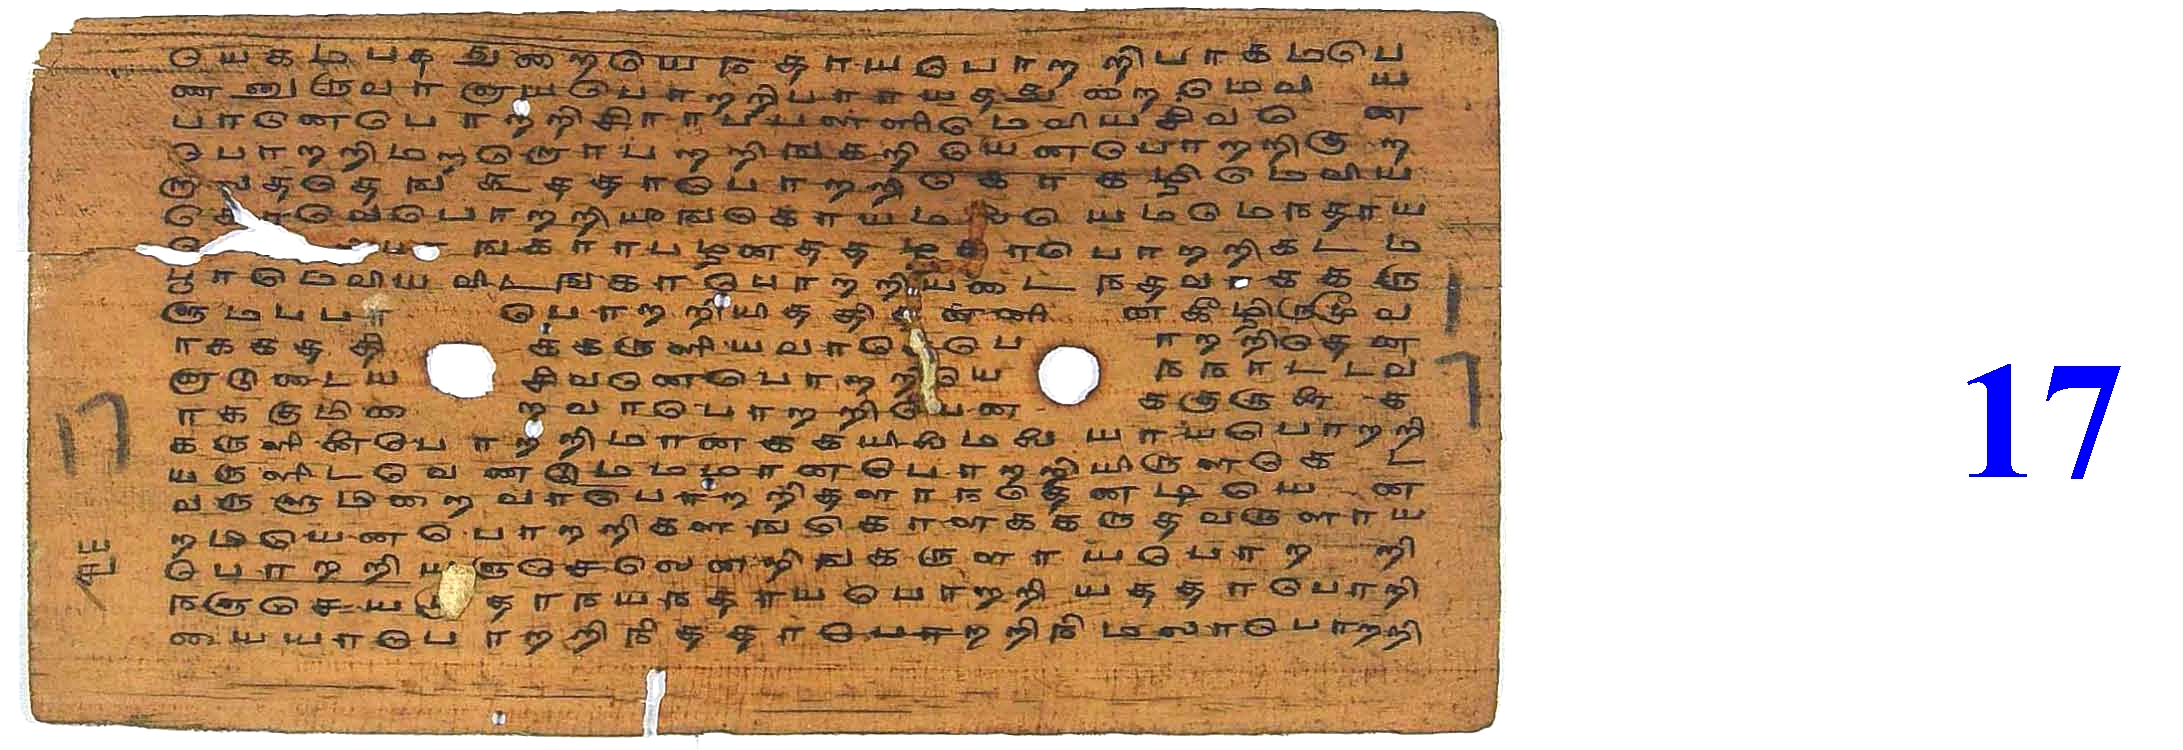 யெகமபததுறையெநதாயபொறறிபாகமபெ
ணணுருவானாயபொறறிபராயததுறைமெவிய
பரனெபொறறிசிராபபளளிமெவியசிவனெ
பொறறிமறறொரபறறிஙகறியெனபொறறிகுற
றாலததெஙகூததாபொறறிகொகழிமெவிய
கொவெபொறறியீஙகொயமலையெமமெநதாய
ஙகாரபழனததழகாபொறறிகடம
பூரமெவியவிடஙகாபொறறியடைநதவரககரு
ளுமபபா பொறறியிததி தனனினகீழிருமூவ
ரககததி ககருளியவரசெபொறறிதென
னாடுடைய சிவனெபொறறியெநநாடடவ
ரககுமிறை வாபொறறியெனககுருளைக
கருளினைபொறறிமானககயிலைமலையாயபொறறி
யருளிடவெணடுமமமானபொறறியிருளகெட
வருளுமிறைவாபொறறிதளரநதெனடியென
றமியெனபொறறிகளஙகொளககருதவருளாய
பொறறியஞசெலெனறிஙகருளாயபொறறி
நஞசெயமுதாநயநதாயபொறறியததாபொறறி
யையாபொறறிநிததாபொறறிநிமலாபொறறி
17